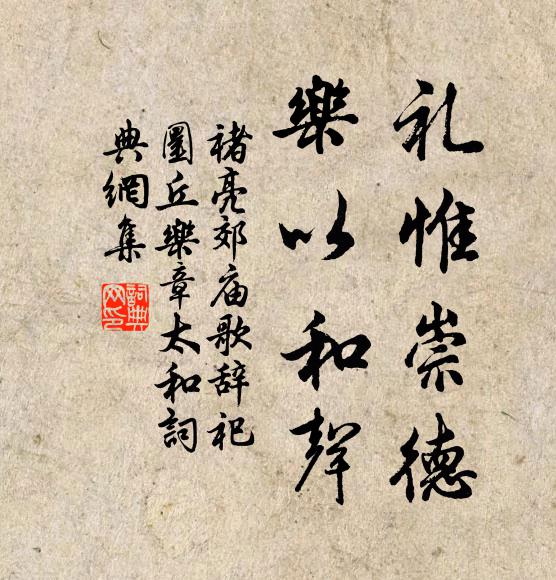 礼惟崇德
樂以和聲
褚亮郊庙歌辞祀
圜丘樂章太和詞
典網集
詞典
网印